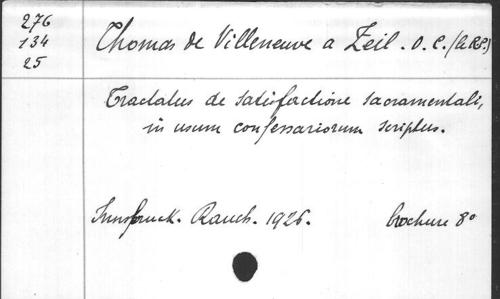 276
134
25
Thomas de Villeneuve a Zeil. O. C. (A.R.P.)
Tractatus de satisfactione sacramentali,
in usum confessariorum scriptus.
Innsbruck. Rauch. 1926. brochure 8°